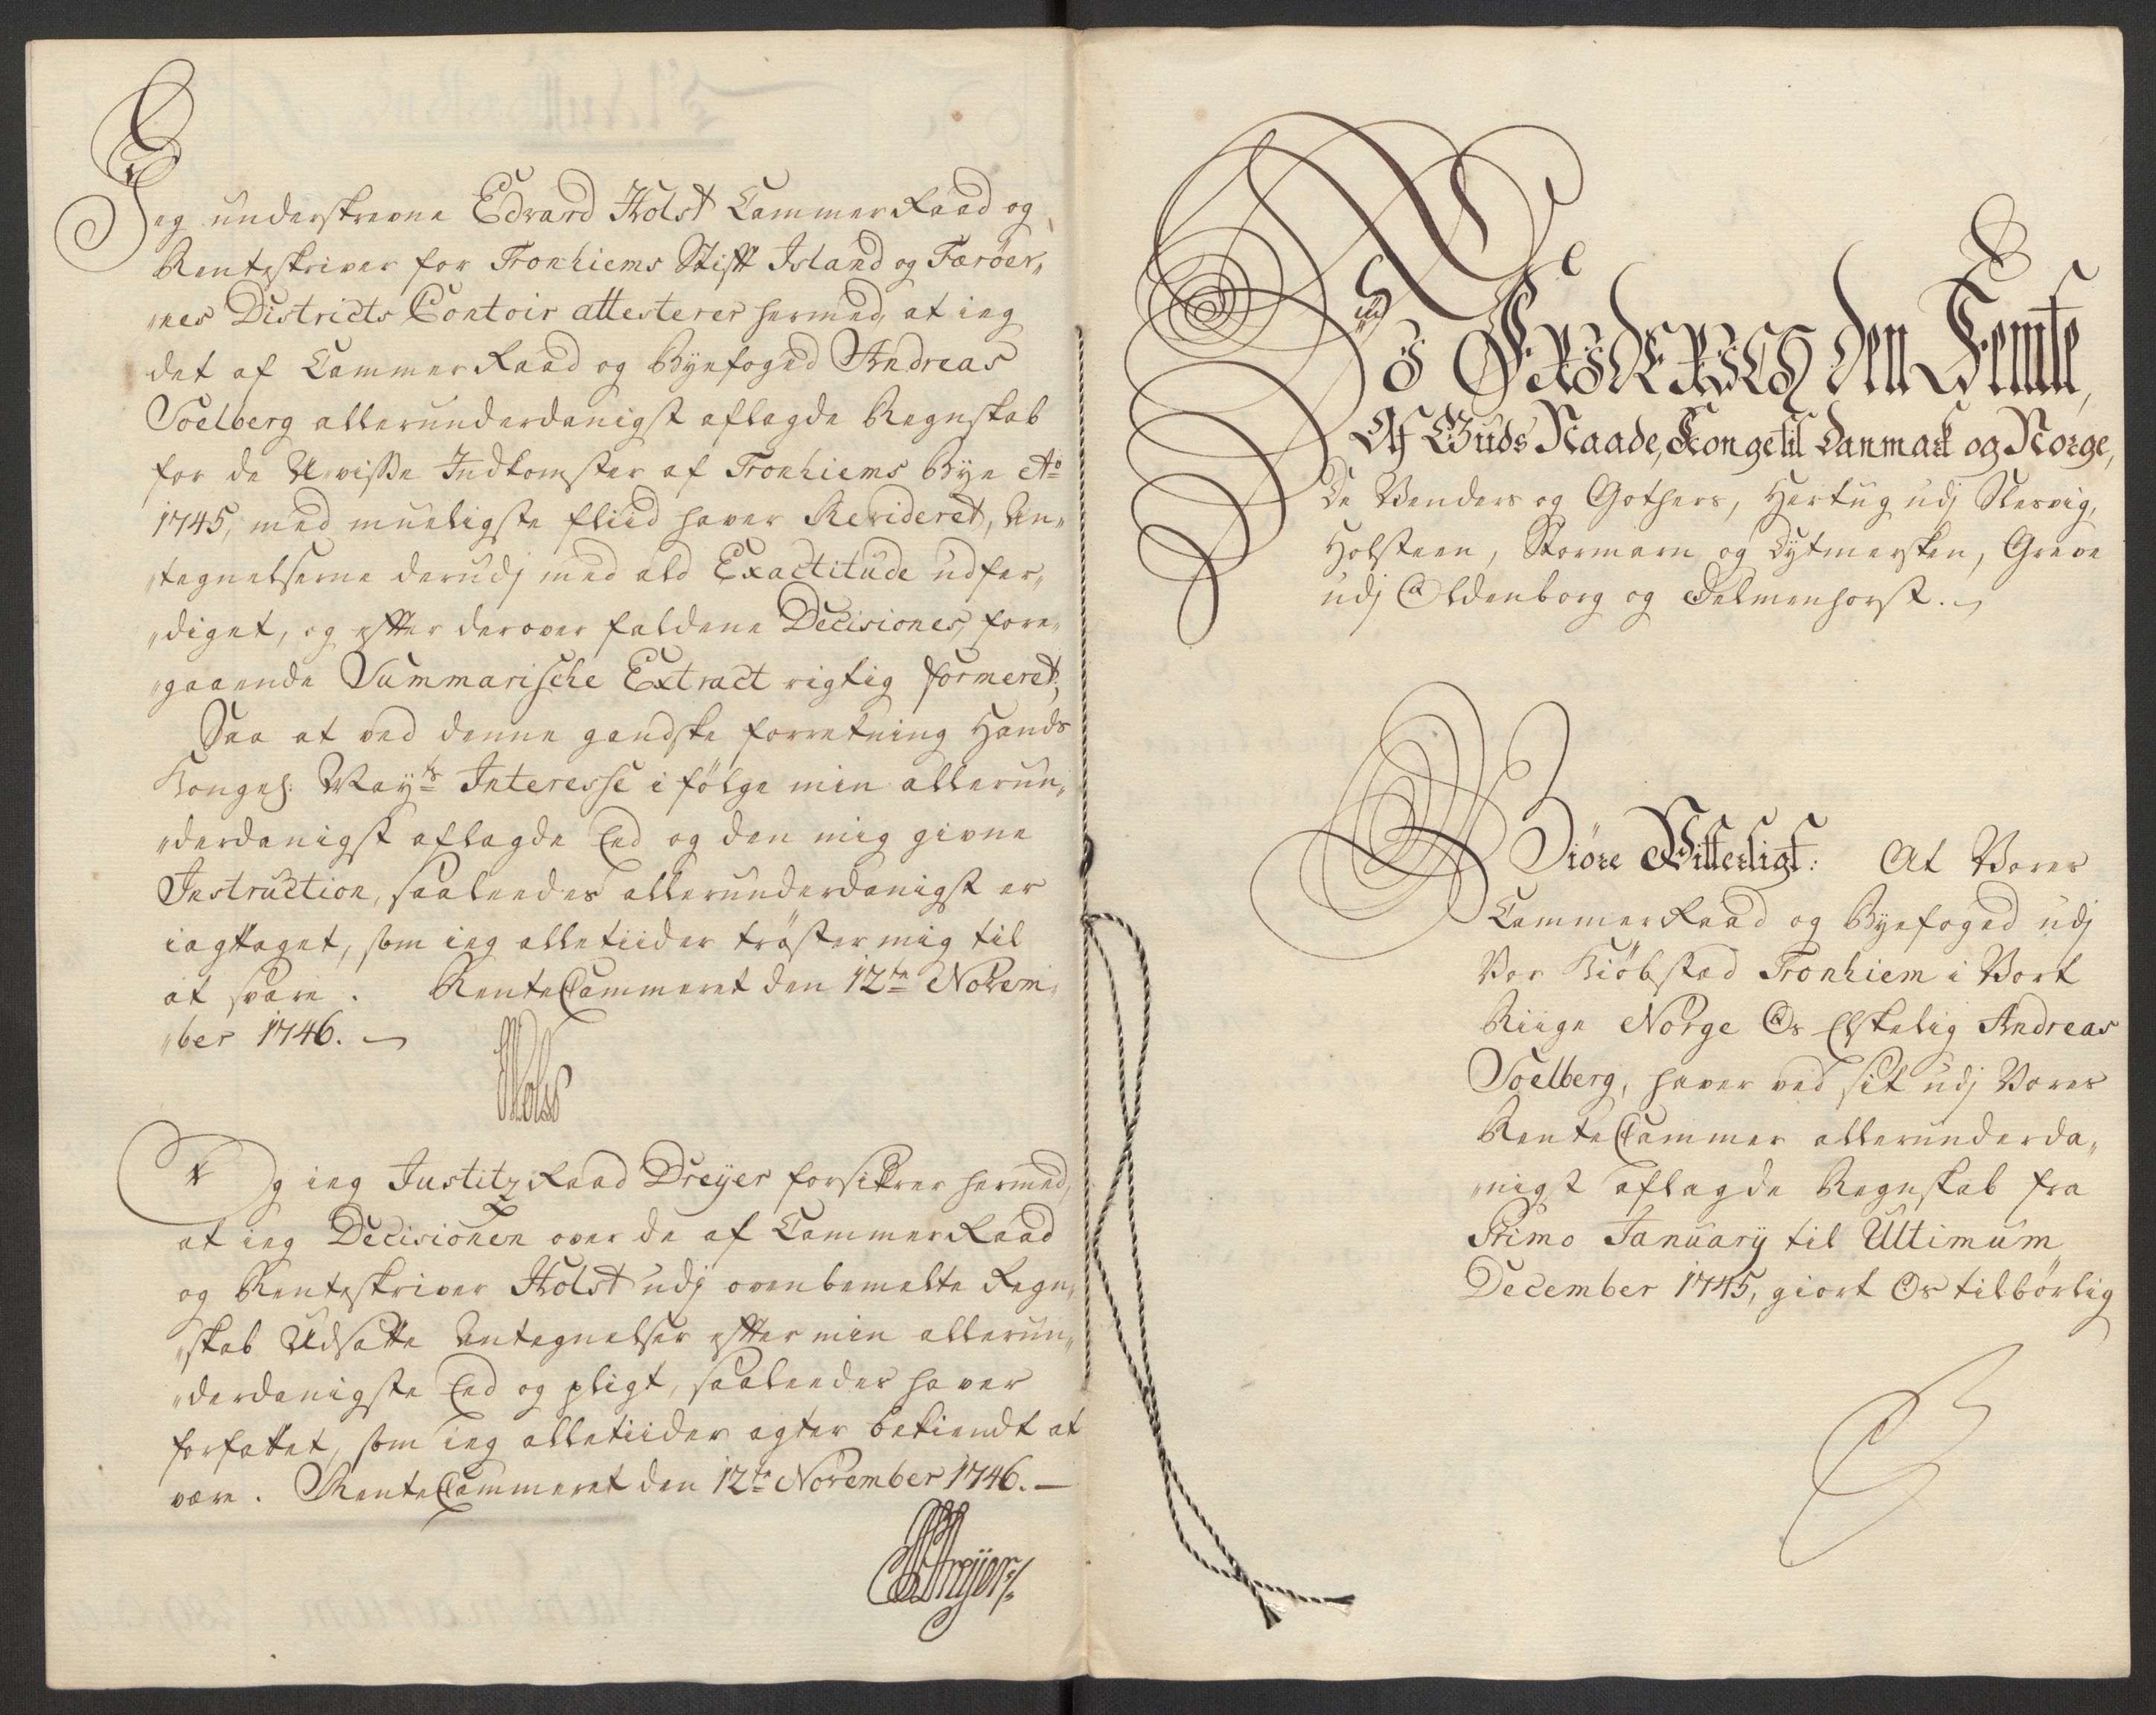 Jeg underskrevne Edvard Holst Cammer Raad og
Renteskriver for Tronhiems Stift Island og Færøer„
„nes Districts Contoir attesterer hermed, at ieg
det af Cammer Raad og Byefoged Andreas
Soelberg allerunderdanigst aflagde Regnskab
for de Uvisse Indkomster af Tronhiems Bye Ao
1745, med mueligste fliid haver Revideret, An„
„tegnelserne derudj med ald Exactitude udfær„
„diget, og efter derover faldene Decisioner, fore„
„gaaende Summarische Extract rigtig formeret;
Saa at ved denne gandske forretning Hands
Kongel: Mayts Interesse i følge min allerun„
„derdanigst aflagde Eed og den mig givne
Instruction, saaleedes allerunderdanigst er
iagttaget, som ieg alletiider trøster mig til
at svare. RenteCammeret den 12te Novem„
„ber 1746.
Holst
Og ieg Justitz Raad Dreyer forsikrer hermed,
at ieg Decisionen over de af Cammer Raad
og Renteskriver Holst udj ovenbemelte Regn„
„skab Udsatte Antegnelser efter min allerun„
„derdanigste Eed og pligt, saaleedes haver
forfattet, som ieg alletiider agter bekiendt at
være. RenteCammeret den 12te November 1746.
Dreyer
Wi FRIDERICH den Femte,
Af Guds Naade, Konge til Danmark og Norge,
De Venders og Gothers, Hertug udj Slesvig,
Holsteen, Stormarn og Dytmersken, Greve
udj Oldenborg og Delmenhorst.
Giöre Vitterligt: At Vores
Cammer Raad og Byefoged udj
Vor Kiöbstad Tronhiem i Vort
Riige Norge Os Elskelig Andreas
Soelberg, haver ved sit udj Vores
RenteCammer allerunderda„
„nigst aflagde Regnskab fra
Primo January til Ultimum
December 1745, giort Os tilbörlig